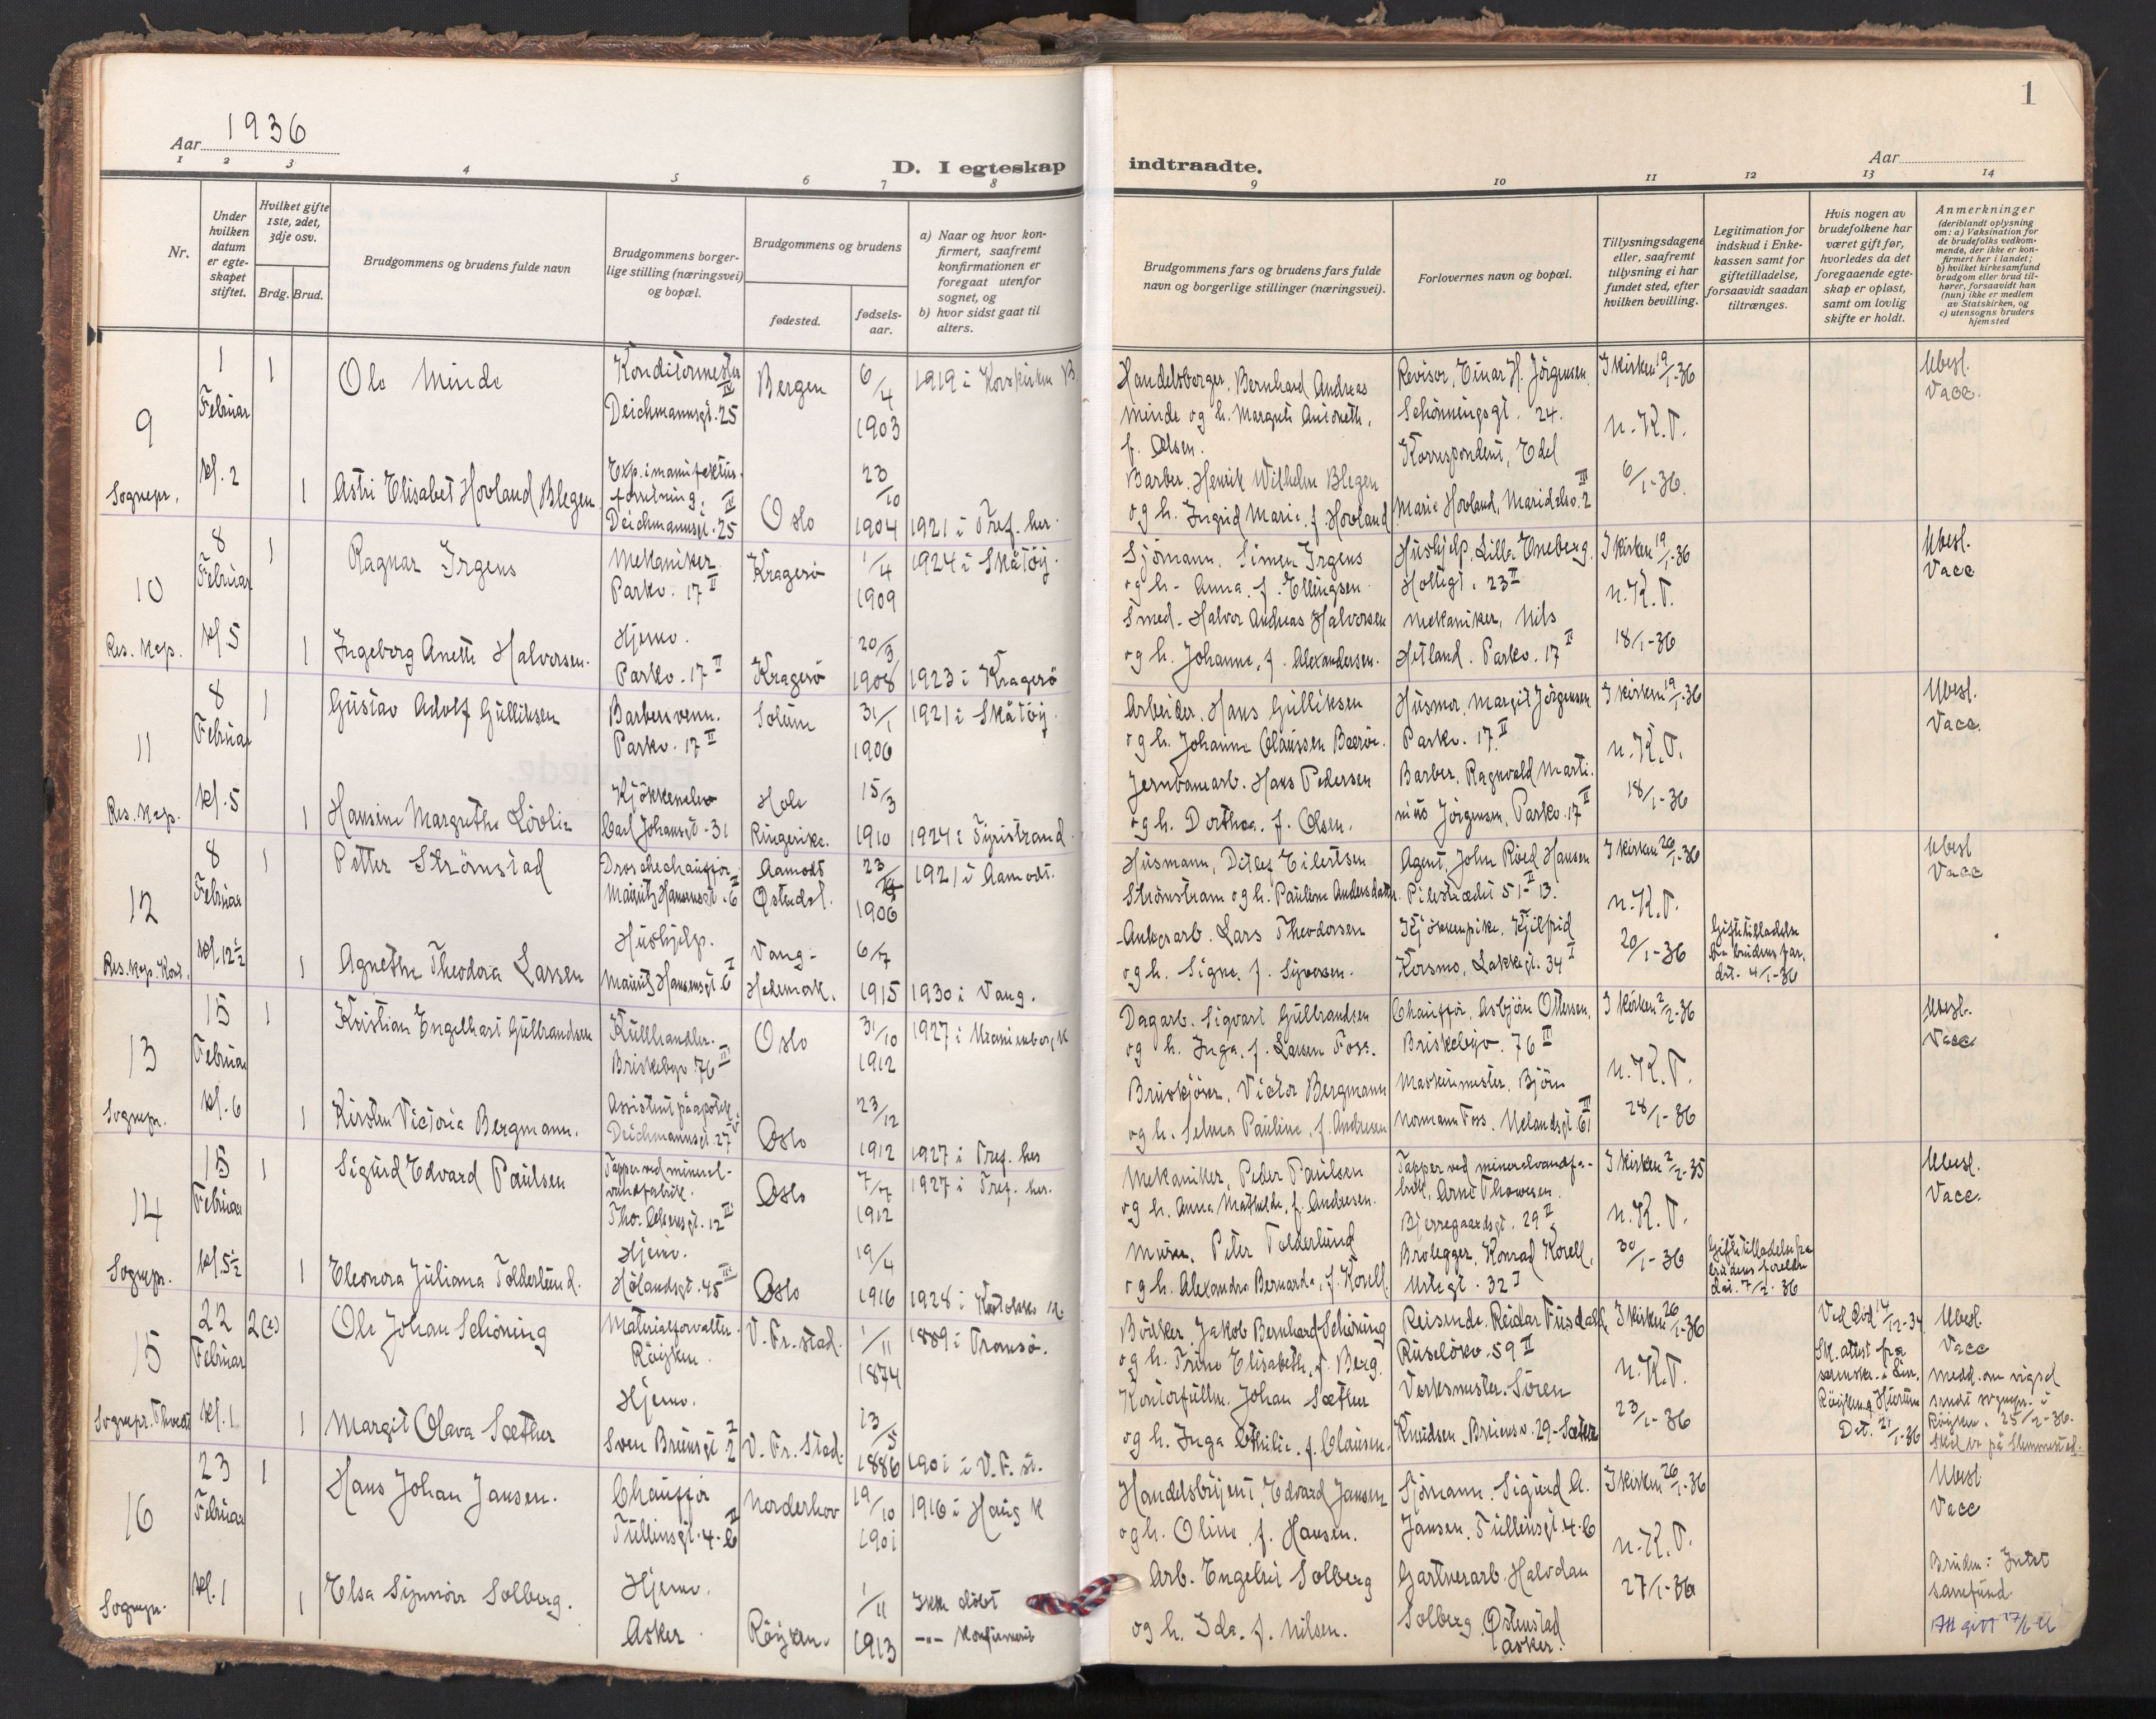 1936
Aar
Aar
1
D. I egteskap
indtraadte.
1 2 3 4 5 6 7 8 9 10 11 12 13 14
Nr.
Under hvilken datum er egte-skapet stiftet.
Hvilket gifte 1ste, 2det, 3dje osv.
Brdg. Brud.
Brudgommens og brudens fulde navn
Brudgommens borger-lige stilling (næringsvei) og bopæl.
Brudgommens og brudens
fødested.
fødsels-aar.
a) Naar og hvor kon-firmert, saafremt konfirmationen er foregaat utenfor sognet, og
b) hvor sidst gaat til alters.
Brudgommens fars og brudens fars fulde navn og borgerlige stillinger (næringsvei).
Forlovernes navn og bopæl.
Tillysningsdagene eller, saafremt tillysning ei har fundet sted, efter hvilken bevilling.
Legitimation for indskud i Enke-kassen samt for giftetilladelse, forsaavidt saadan tiltrænges.
Hvis nogen av brudefolkene har været gift før, hvorledes da det foregaaende egte-skap er opløst, samt om lovlig skifte er holdt.
Anmerkninger
(deriblandt oplysning om: a) Vaksination for de brudefolks vedkom-mende, der ikke er kon-firmert her i landet;
b) hvilket kirkesamfund brudgom eller brud til-hører, forsaavidt han (hun) ikke er medlem av Statskirken, og
c) utensogns bruders hjemsted
9
1 Februar
kl. 2
Sognepr.
1
Ole Minde
Konditormester
Deichmannsgt. 25 IV
Bergen
6/4 1903
1919 i Korskirken B.
Handelsborger, Bernhard Andreas
Minde og h. Margrete Antoneth,
f. Olsen.
Revisor, Einar H. Jörgensen.
Schönningsgt. 24.
I kirken 19/1-36
n.K.T.
Ubesl.
Vacc.
1
Astri Elisabet Hovland Blegen
Exp. i manufaktur-
forretning.
Deichmannsgt. 25 IV
Oslo
23/10 1904
1921 i Tref. her.
Barber, Henrik Wilhelm Blegen
og h. Ingrid Marie, f. Hovland
Korrespondent, Edel
Marie Hovland, Maridalsv. 2 III
6/1-36.
10
8 Februar
kl. 5
Res. kap.
1
Ragnar Irgens
Mekaniker
Parkv. 17 II
Kragerö
1/4 1909
1924 i Skåtöy.
Sjömann, Simen Irgens
og h. Anna, f. Ellingsen
Hushjelp, Lilla Eneberg.
Holtegt. 23 II
I kirken 19/1-36
n.K.T.
Ubesl.
Vacc
1
Ingeborg Anette Halvorsen.
Hjemv.
Parkv. 17 II
Kragerö
20/3 1908
1923 i Kragerö
Smed. Halvor Andreas Halvorsen
og h. Johanne, f. Alexandersen.
Mekaniker, Nils
Hetland. Parkv. 17 II
18/1-36
11
8 Februar
kl. 5
Res. kap.
1
Gustav Adolf Gulliksen
Barbersvenn.
Parkv. 17 II
Solum
31/1 1906
1921 i Skåtöy.
Arbeider, Hans Gulliksen
og h. Johanne Claussen
Husmor, Margit Jörgensen
Parkv. 17 II
I kirken 19/1-36
n.K.T.
Ubesl.
Vacc.
1
Hansine Margrethe Lövlie
Carl Johansgt. 31
Hole
Ringerike.
15/3 1910
1924 i Tyristrand.
Jernbanearb. Hans Pedersen
og h. Dorthea, f. Olsen.
Barber, Ragnvald Marti-
nius Jörgensen, Parkv. 17 II
18/1-36
12
8 Februar
kl. 12½
Res. kap. Kont.
1
Petter Strömstad
Droschechaufför
Mauritz Hansensgt. 6 I
Aamodt
Østerdal.
1906
1921 i Aamodt.
Husmann, Detlef Eilertsen
Strömstram og h. Pauline Andersdatter.
Agent, John Röed Hansen
Pilestrædet 51-13. II
I kirken 26/1-36
n.K.T.
Ubesl
Vacc
1
Agnethe Theodora Larsen
Hushjelp.
Mauritz Hansensgt. 6 I
Vang-
Hedemark.
6/7 1915
1930 i Vang.
Ankerarb. Lars Theodorsen
og h. Signe, f. Syversen.
Kjökkenpike, Kjelfrid
Korsmo, Lakkegt. 34 I
20/1-36
Giftetilladelse
fra brudens far,
dat. 4/1-36
13
15 Februar
kl. 6
Sognepr.
1
Kristian Engelhart Gulbrandsen
Kullhandler.
Briskebyv. 76 III
Oslo
31/10 1912
1927 i Uranienborg K
Dagarb. Sigvart Gulbrandsen
og h. Inga, f. Larsen Foss.
Chaufför, Asbjörn Ottersen,
Briskebyv. 76 II
I kirken 2/2-36
n.K.T.
Ubesl.
Vacc
1
Kirsten Victoria Bergmann.
Assistent på apotek
Deichmannsgt. 27
Oslo
23/12 1912
1927 i Tref. her
Bruskjörer, Victor Bergmann
og h. Selma Pauline, f. Andresen
Maskinmester, Björn
Normann Foss. Uelandsgt. 61 III
28/1-36
14
15 Februar
kl. 5½
Sognepr.
1
Sigurd Edvard Paulsen
Tapper ved mineral-
vannfabrik.
Thor Olsensgt. 12 III
Oslo
7/7 1912
1927 i Tref. her.
Mekaniker, Peder Paulsen
og h. Anna Mathilde, f. Andresen.
Tapper ved mineralvandfa-
brik, Arne Thowesen.
Bjerregaardsgt. 29 II
I kirken 2/2-35
n.K.T.
Ubesl.
Vacc.
1
Eleonora Juliana Tolderlund.
Hjemv.
Hölandsgt. 45 III
Oslo
19/4 1916
Murer, Peter Tolderlund
og h. Alexandra Bernarda, f. Korell.
Brolegger, Konrad Korell,
Urtegt. 32 I
30/1-36
Giftetilladelse fra
brudens foreldre
dat. 7/2-36
15
22 Februar
kl. 1
Sognepr. Thvedt
2(e)
Ole Johan Schöning
Materialforvalter.
Röyken.
V. Fr.stad.
1/11 1874
1889 i Tromsö.
Bödker, Jakob Bernhard Schöning
og h. Trine Elisabeth, f. Berg.
Reisende, Reidar Fuisdahl,
Ruselökv. 59 II
I kirken 26/1-36
n.K.T.
Ved död 14/12-34
Sk. attest fra
sorenskr. i Lier,
Röyken og Hurum
Dat. 21/1-36
Ubesl.
Vacc
medd. om vigsel
sendt sognepr. i
Röyken. 25/2-36.
1
Margit Olava Sæther
Hjemv.
Sven Bruunsgt. 2
V. Fr. Stad.
13/5 1886
1901 i V. F. st.
Kontorfullm. Johan Sæther
og h. Inga Othilie, f. Clausen.
Verksmester, Sören
Knudsen, Bruunsv. 29-Sæter
23/1-36
16
23 Februar
kl. 1
Sognepr.
1
Hans Johan Jansen.
Chaufför
Tullinsgt. 4-b II
Norderhov
19/10 1901
1916 i Haug K
Handelsbetjent, Edvard Jansen
og h. Oline, f. Hansen.
Sjömann, Sigurd A.
Jansen, Tullinsgt. 4-b
I kirken 26/1-36
n.K.T.
Ubesl
Vacc
1
Elsa Synnöve Solberg.
Hjemv.
Asker.
Röyken.
1/11 1913
Ikke döbt
-"- konfirmert
Arb. Engebri Solberg
og h. Ida, f. Nilsen.
Gartnerarb. Halvdan
Solberg, Østenstad
Asker.
27/1-36
Bruden: Intet
samfund